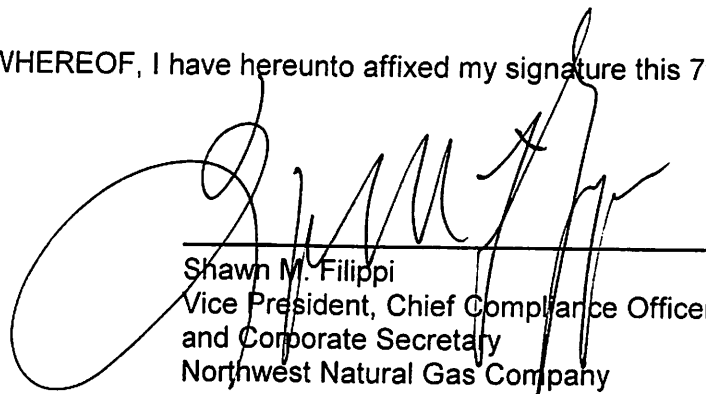 WHEREOF, I have hereunto affixed my signature this 7
Shawn M. Filippi
Vice President, Chief Compliance Officer
and Corporate Secretary
Northwest Natural Gas Company